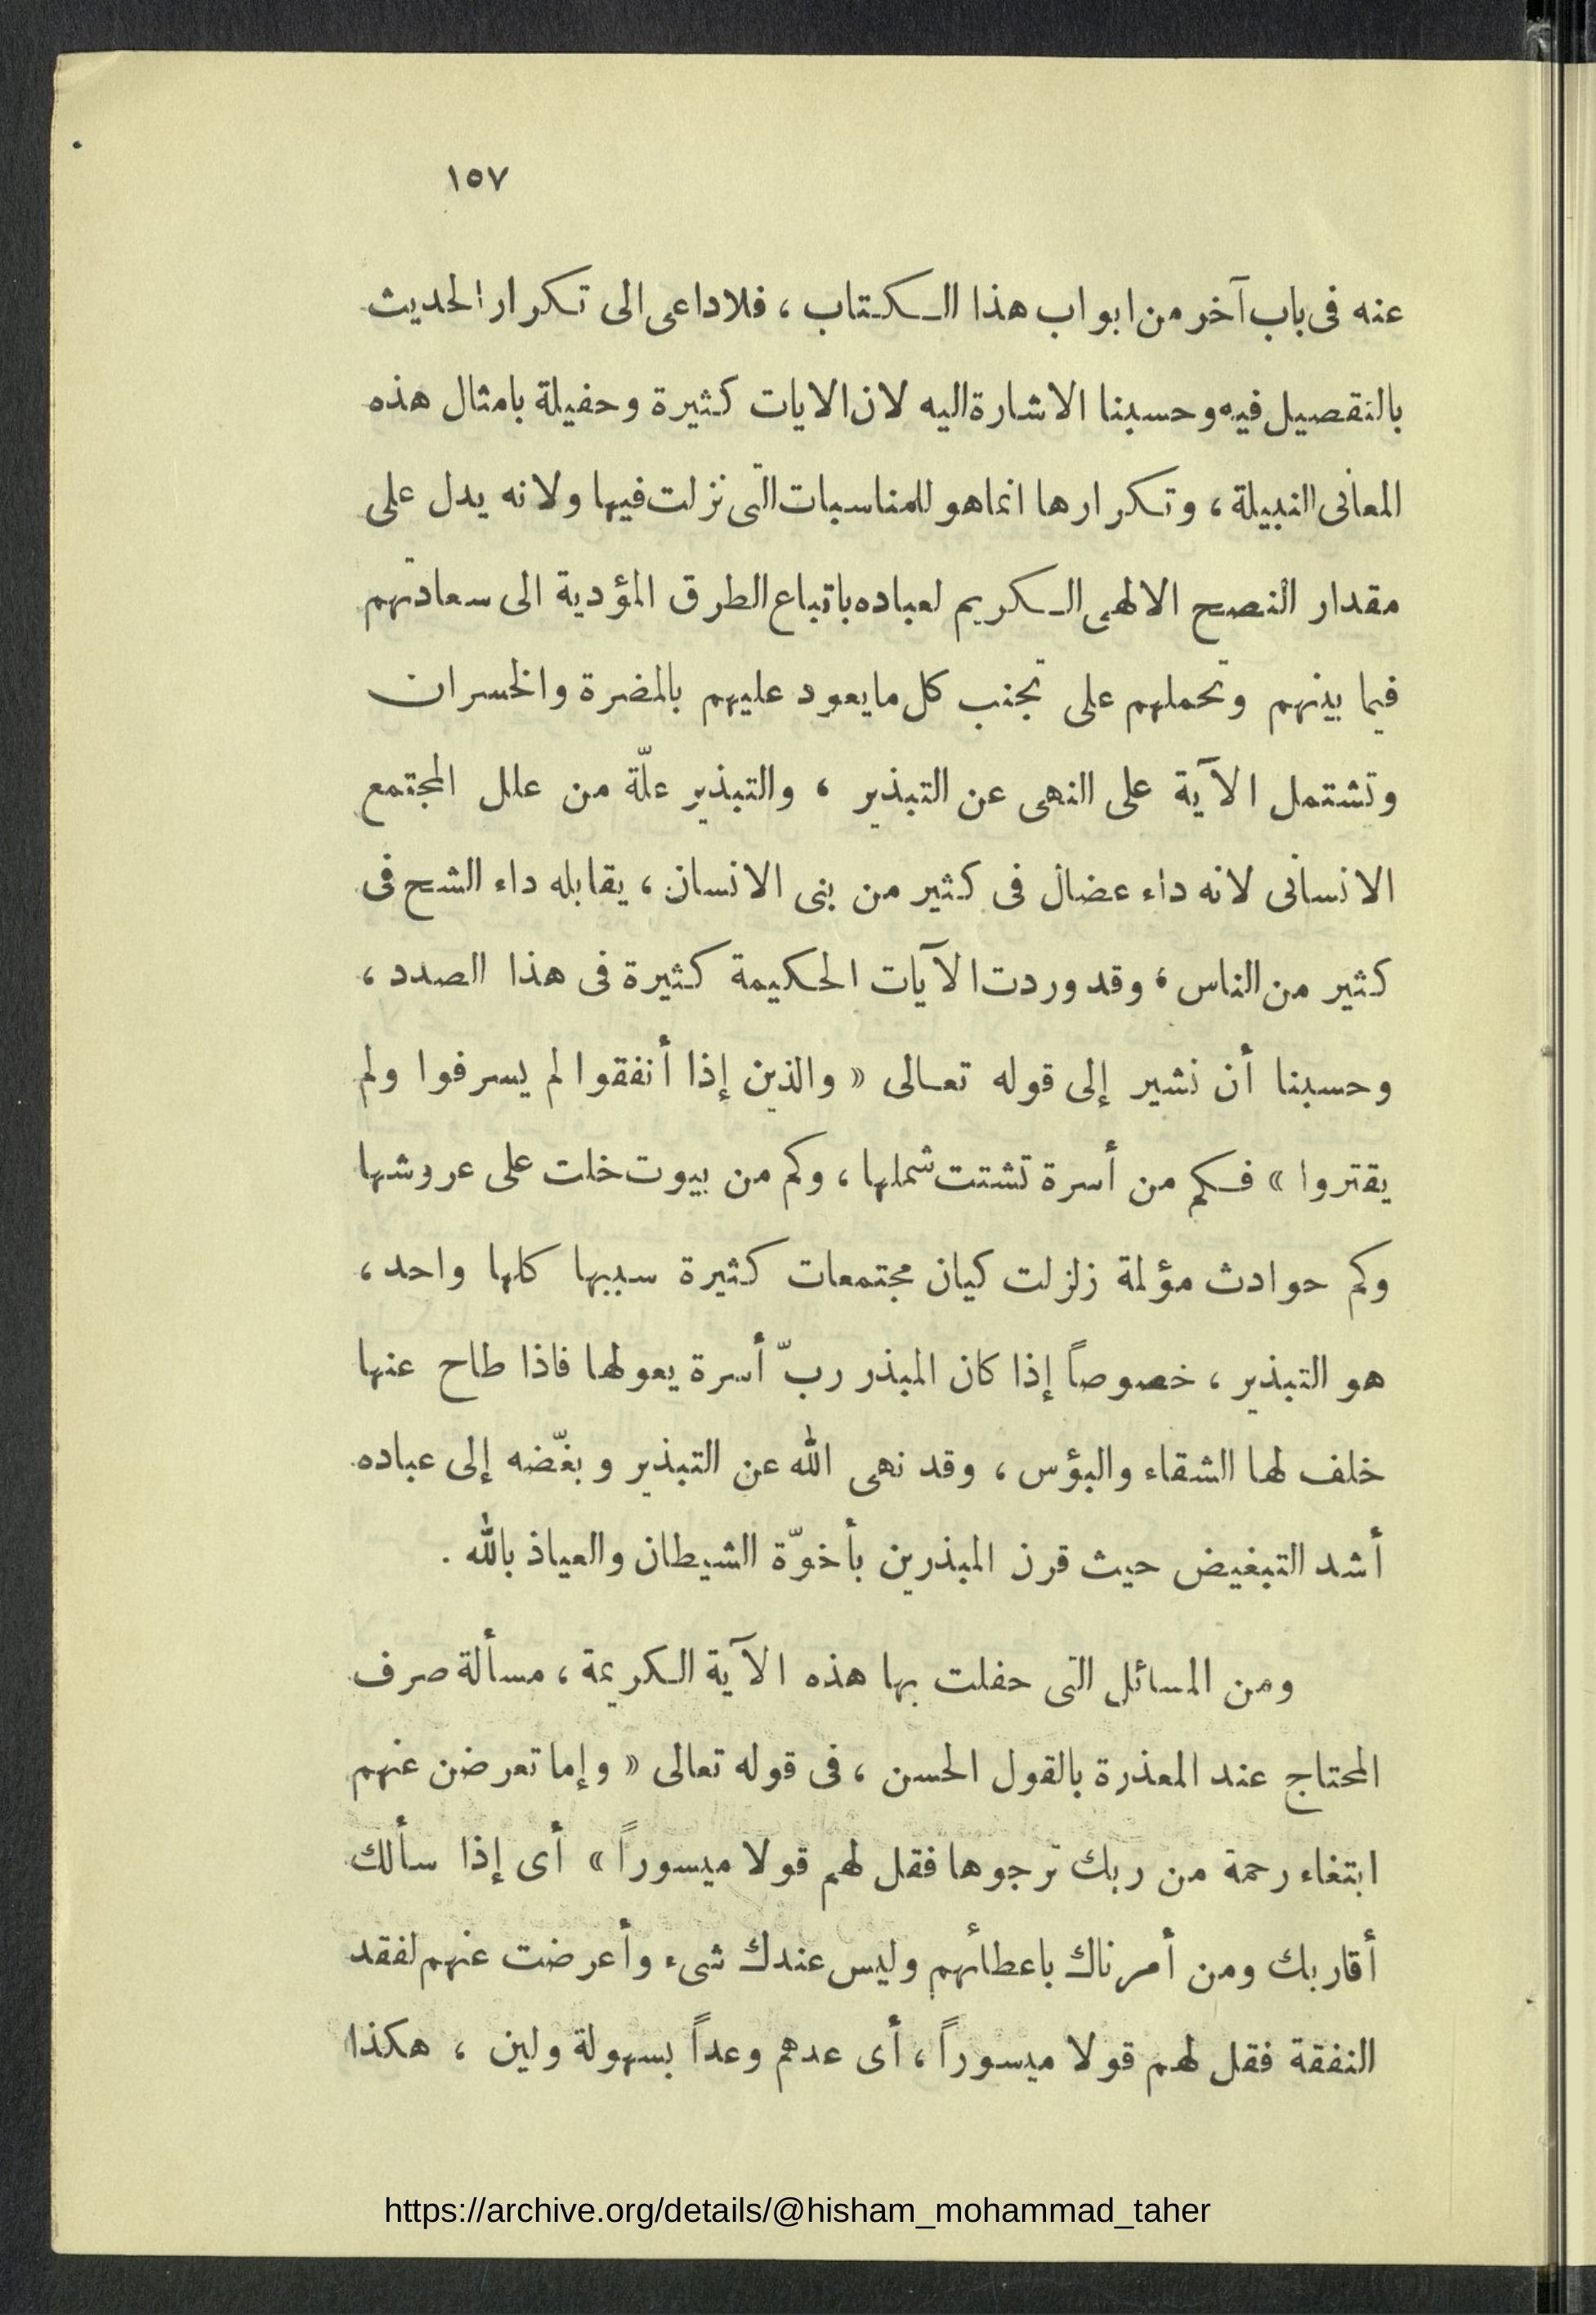 ١٥٧
عنه فى باب آخر من ابواب هذا الكتاب ، فلاداعى الى تكرار الحديث
بالتفصيل فيه وحسبنا الاشارة اليه لان الايات كثيرة وحفيلة بامثال هذه
المعانى النبيلة ، وتكرارها انماهو للمناسبات التى نزلت فيها ولانه يدل على
مقدار النصح الالهى الكريم لعباده باتباع الطرق المؤدية الى سعادتهم
فيما بينهم وتحملهم على تجنب كل مايعود عليهم بالمضرة والخسران
وتشتمل الآية على النهى عن التبذير ، والتبذير علّة من علل المجتمع
الانسانى لانه داء عضال فى كثير من بنى الانسان ، يقابله داء الشح فى
كثير من الناس ، وقد وردت الآيات الحكيمة كثيرة فى هذا الصدد ،
وحسبنا أن نشير إلى قوله تعالى « والذين إذا أنفقوا لم يسرفوا ولم
يقتروا » فكم من أسرة تشتت شملها ، وكم من بيوت خلت على عروشها
وكم حوادث مؤلمة زلزلت كيان مجتمعات كثيرة سببها كلها واحد ،
هو التبذير ، خصوصاً إذا كان المبذر ربّ أسرة يعولها فاذا طاح عنها
خلف لها الشقاء والبؤس ، وقد نهى الله عن التبذير وبغّضه إلى عباده
أشد التبغيض حيث قرن المبذرين بأخوّة الشيطان والعياذ بالله .
ومن المسائل التى حفلت بها هذه الآية الكريمة ، مسألة صرف
المحتاج عند المعذرة بالقول الحسن ، فى قوله تعالى « وإما تعرضن عنهم
ابتغاء رحمة من ربك ترجوها فقل لهم قولا ميسوراً » أى إذا سألك
أقاربك ومن أمرناك باعطائهم وليس عندك شىء وأعرضت عنهم لفقد
النفقة فقل لهم قولا ميسوراً ، أى عدهم وعداً بسهولة ولين ، هكذا
https://archive.org/details/@hisham_mohammad_taher